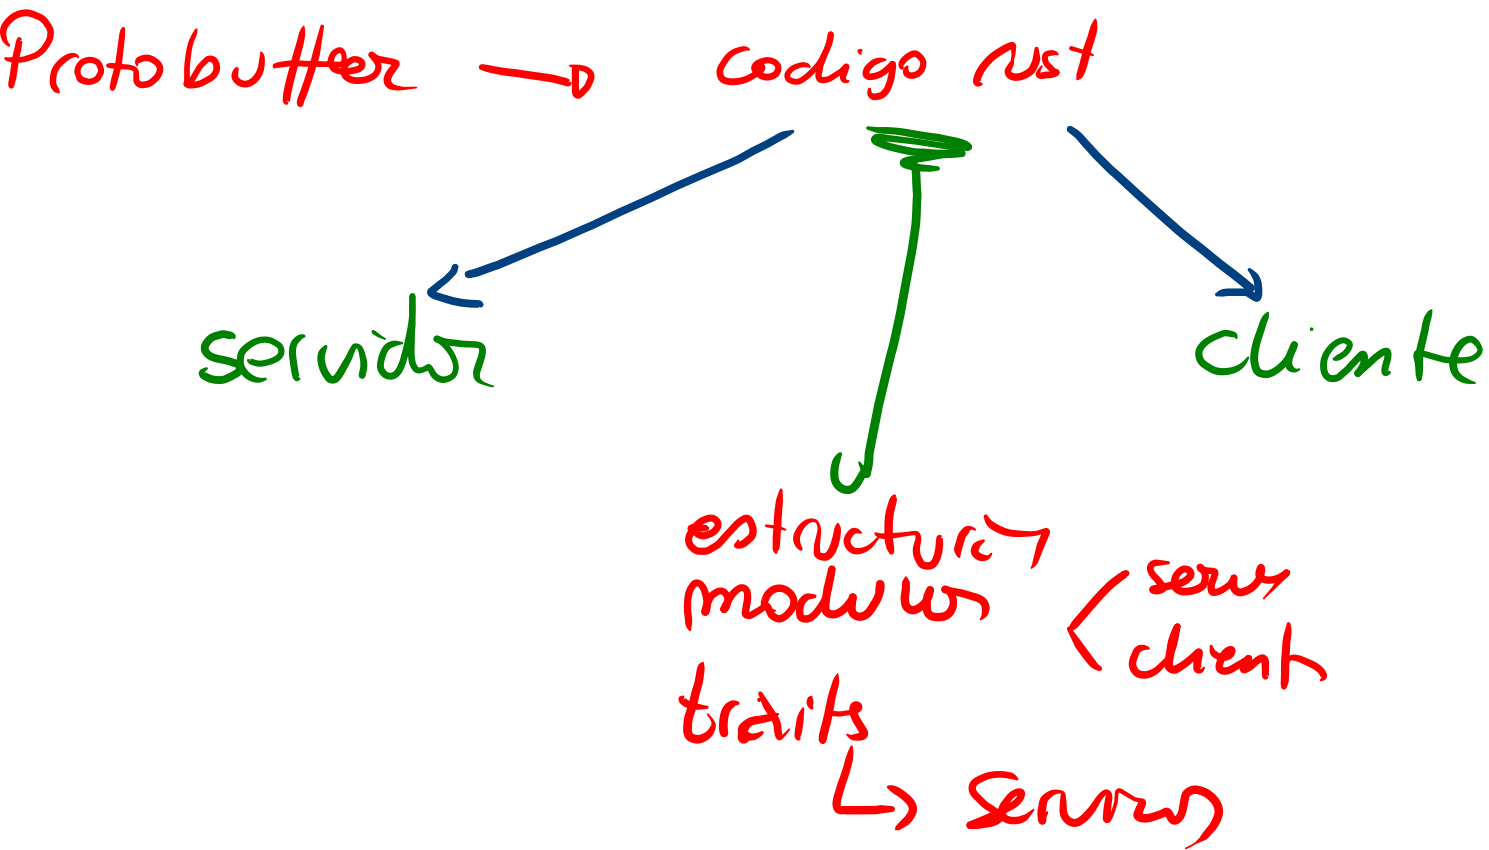 Protobuffer → codigo rust
servidor
cliente
estructuras
modulos
server
client
traits
↳ Servicios